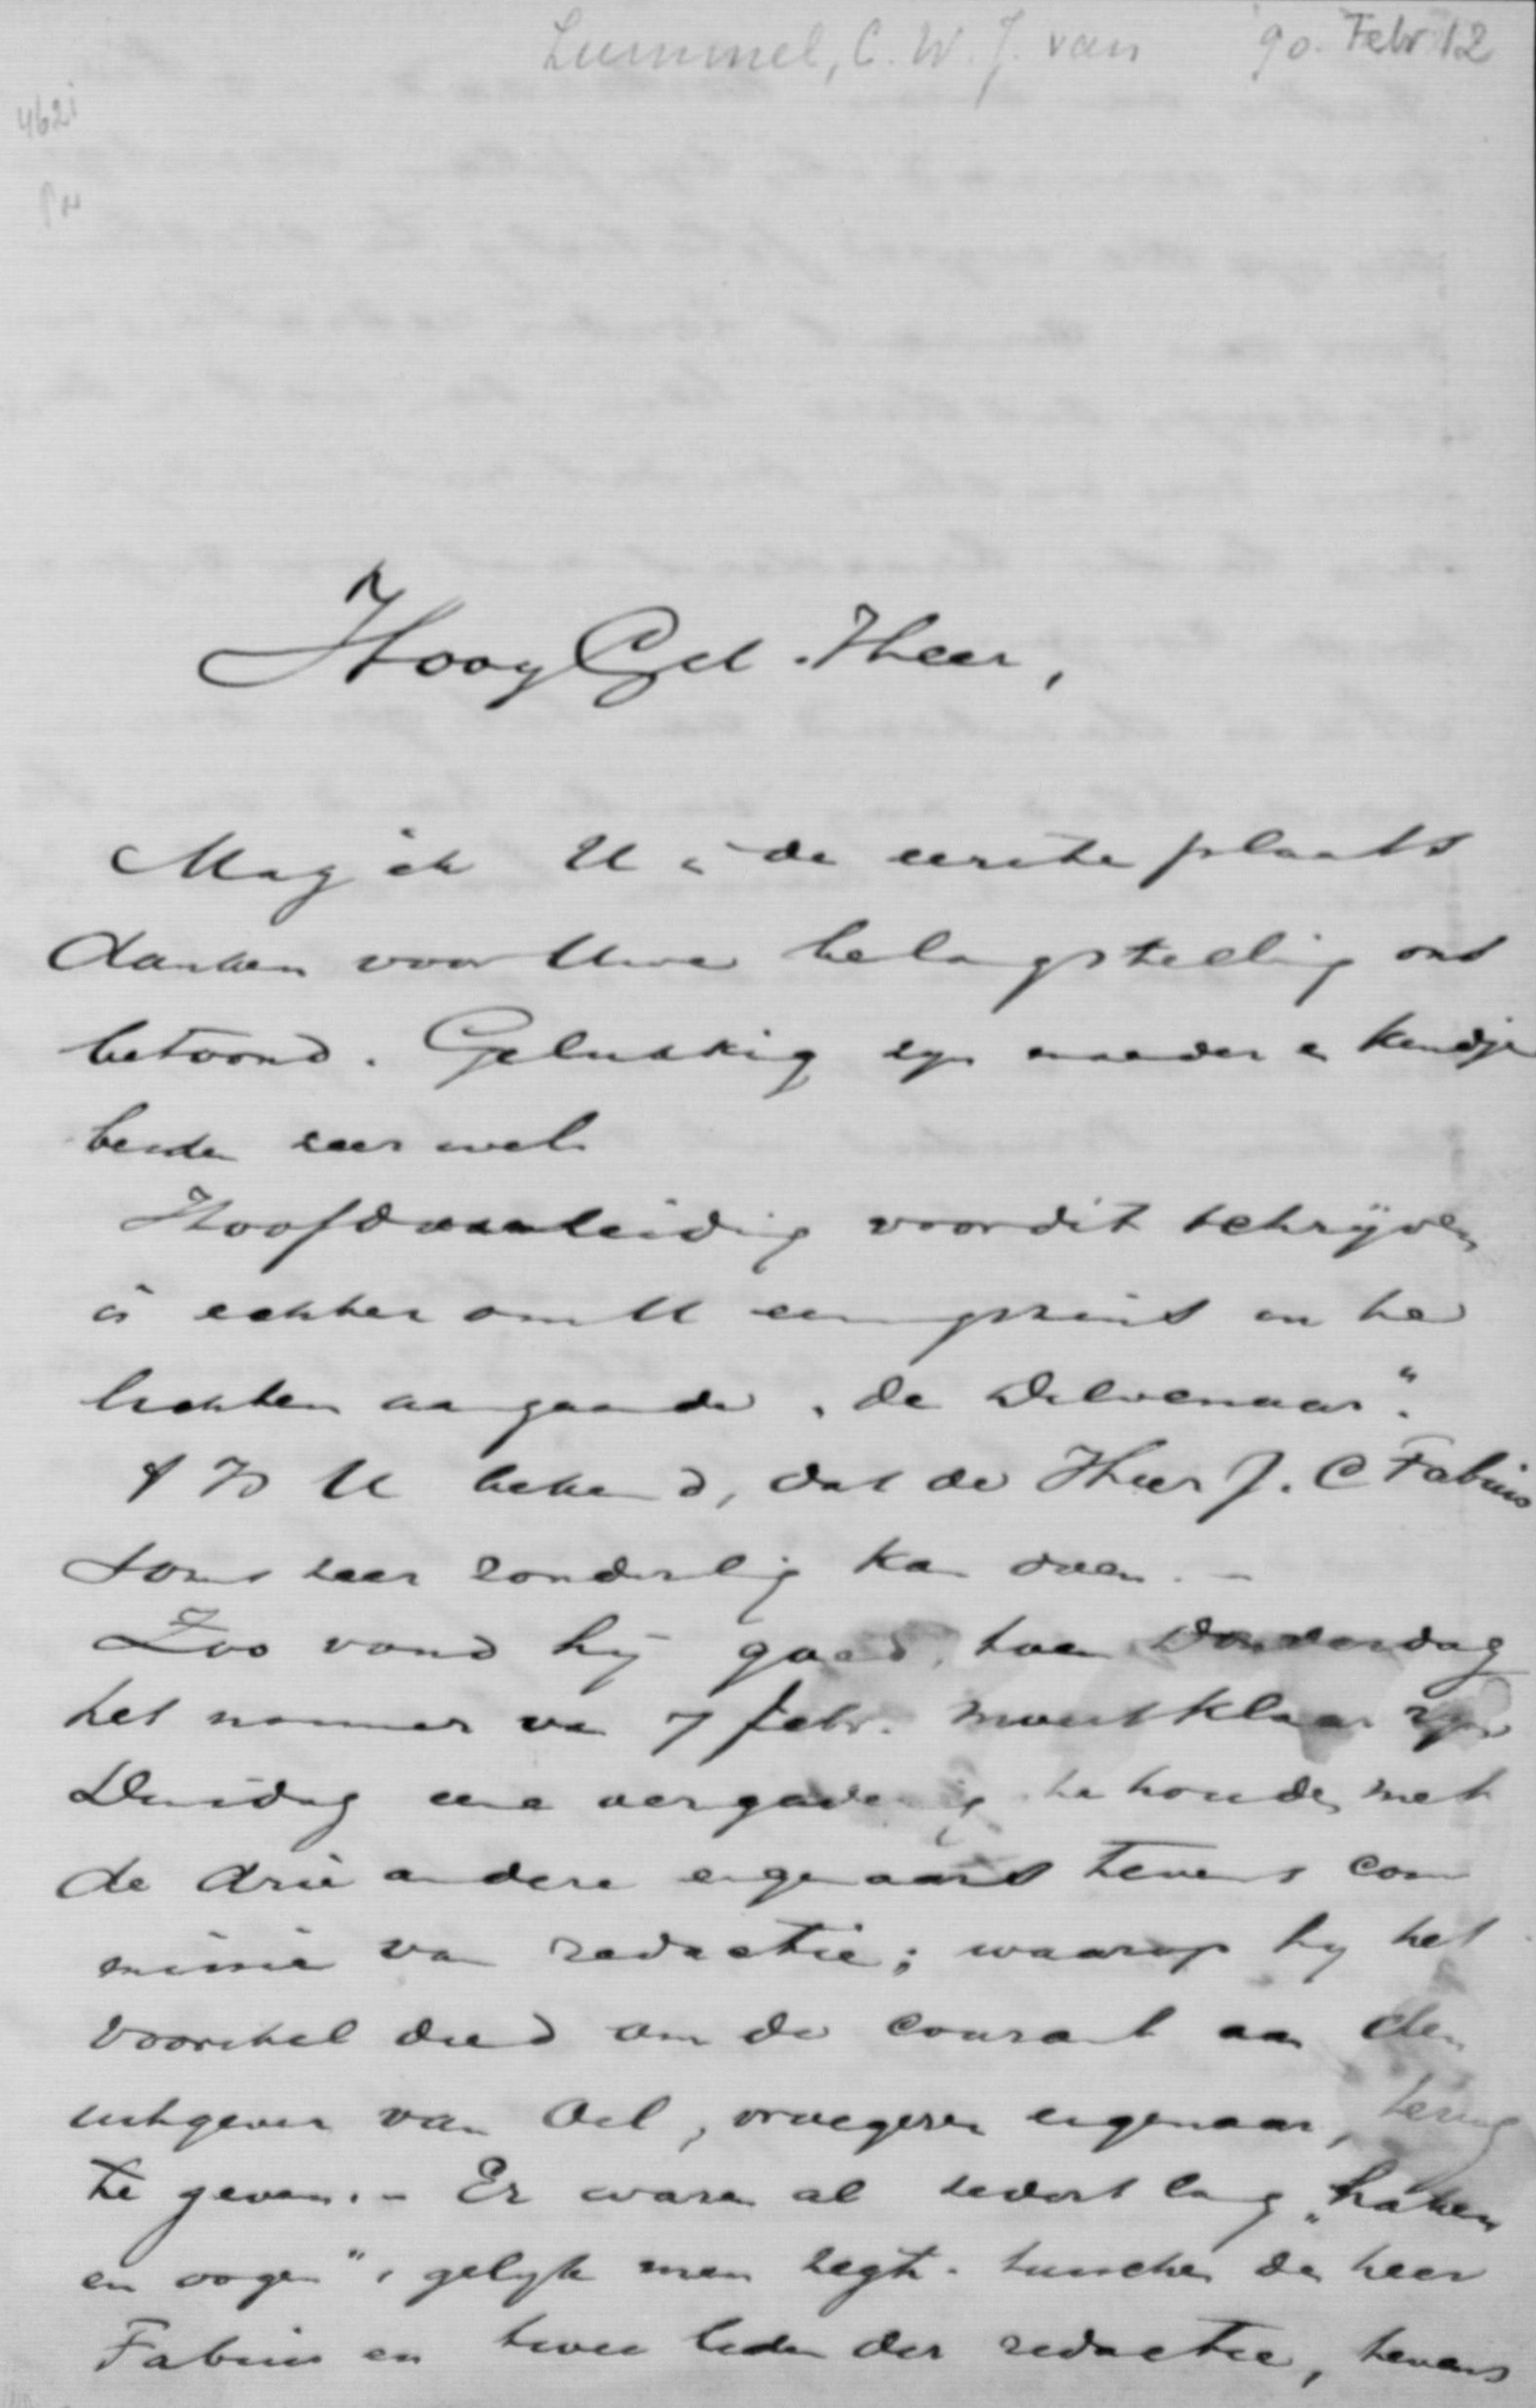 Lummel, C. W. J. van '90. Febr 12
462i
HoogGel. Heer,
Mag ik U i de eerste plaats
danken voor Uwe belangstelling ons
betoond. Gelukkig zijn moeder en kindje
beiden zeer wel.
Hoofdaanleiding voor dit schrijven
is echter om U eenigszins in te
lichten aangaande „de Delvenaar".
't Is U bekend, dat de Heer J. C Fabius
soms zeer zonderlig kan doen. –
Zoo vond hij goed, toen Donderdag
het nommer van 7 febr. moest klaar zijn
Dinsdag eene vergadering te houden met
de drie andere eigenaars tevens com
missie van redactie; waarop hij het
voorstel deed om de courant aan den
uitgever van Oel, vroegeren eigenaar, terug
te geven. – Er waren al sedert lang „haken
en oogen", gelijk men zegt. tusschen den heer
Fabius en twee leden der redactie, tevens